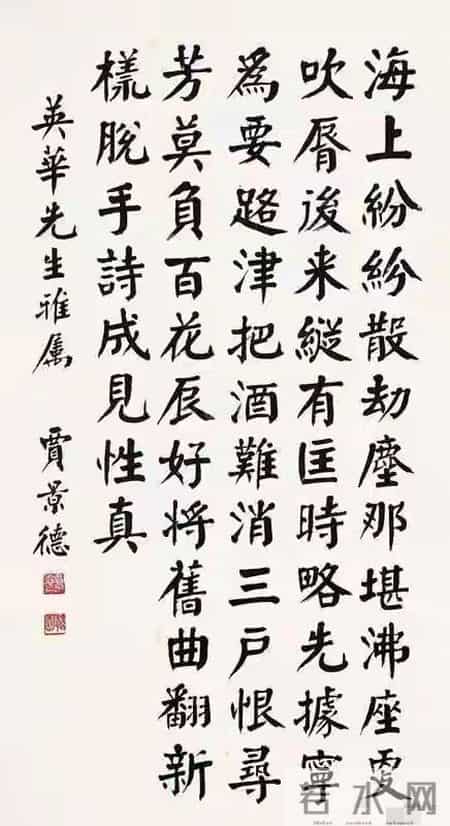 海上紛紛散劫塵那堪沸座更
吹脣後来縱有匡時略先據寧
爲要路津把酒難消三戶恨尋
芳莫負百花辰好将舊曲翻新
樣脫手詩成見性真
英華先生雅属 賈景德
若水网